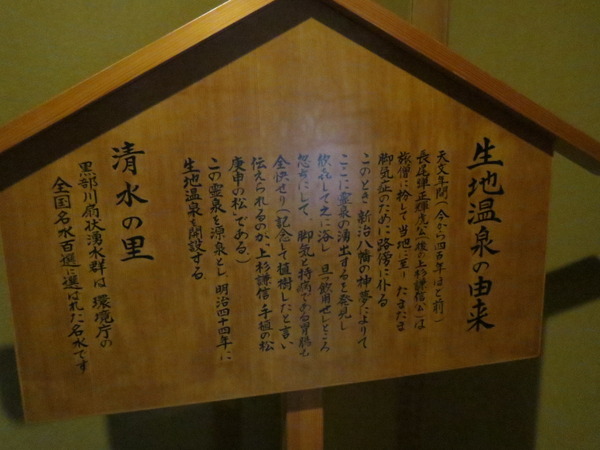 生地温泉の由来
天文年間(今から四百年ほど前)
長尾弾正輝虎公(後の上杉謙信公)は
旅僧に扮して当地に至りたまたま
脚気症のために路傍に仆る
このとき新治八幡の神夢によりて
ここに霊泉の湧出するを発見し
飲泉して之に浴し 且つ飲用せしところ
忽ちにして、脚気と持病である胃腸も
全快せり(記念して植樹したと言い
伝えられるのが、上杉謙信・手植の松
"庚申の松"である。)
この霊泉を源泉とし、明治四十四年に
生地温泉を開設する。
清水の里
黒部川扇状湧水群は、環境庁の
全国名水百選に選ばれた名水です